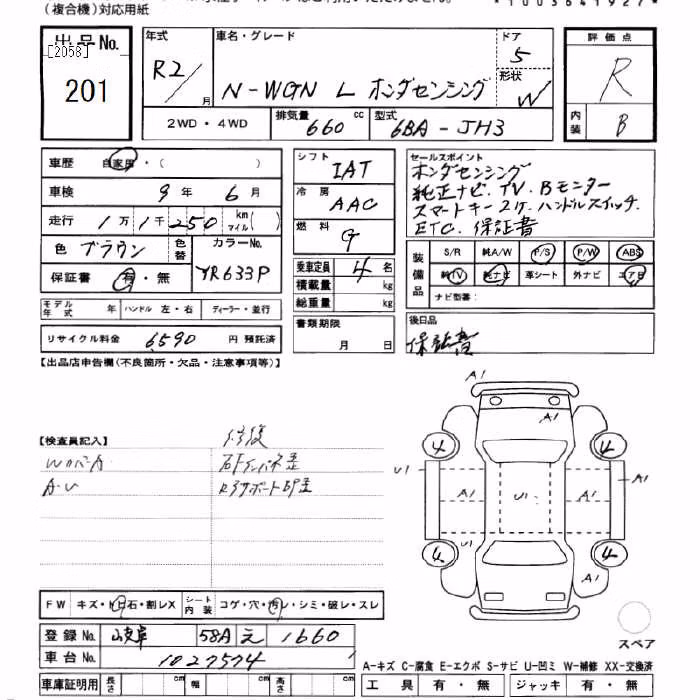 (複合機)対応用紙
*1003641927*
出品No.
[2058]
201
年式
R2/
月
車名・グレード
N-WGN L ホンダセンシング
ドア
5
形状
W
2WD・4WD
排気量
660
cc
型式
6BA-JH3
評価点
R
内装
B
車歴 自家用・( )
車検 9年 6月
走行 1万 1千 250 km マイル( )
色 ブラウン
色替
カラーNo.
YR633P
保証書 有・無
モデル年式 年 ハンドル 左・右 ディーラー・並行
リサイクル料金 6590 円 預託済
シフト
IAT
冷房
AAC
燃料
G
乗車定員 4 名
積載量 kg
総重量 kg
書類期限
月 日
セールスポイント
ホンダセンシング
純正ナビ、TV、Bモニター
スマートキー2ケ、ハンドルスイッチ、
ETC、保証書
装備品
S/R 純A/W P/S P/W ABS
純TV 純ナビ 革シート 外ナビ エアB
ナビ型番:
後日品
保証書
【出品店申告欄(不良箇所・欠品・注意事項等)】
【検査員記入】
修復
WのハA
A・U
右Fインパネ歪
Rサポート凹歪
A1
A1
4
4
U1
A1
U1
A1
A1
U1
4
4
A1
スペア
FW キズ・トビ石・割レX
シート内装 コゲ・穴・汚レ・シミ・破レ・スレ
登録No. 岐阜 58A え 1660
車台No. 1027574
車庫証明用 長さ cm 幅 cm 高さ cm
A-キズ C-腐食 E-エクボ S-サビ U-凹ミ W-補修 XX-交換済
工具 有・無 ジャッキ 有・無